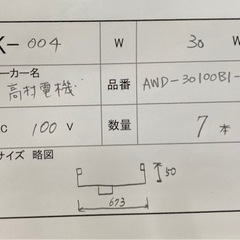 K-004 W 30 W
ーカー名 高村電機 品番 AWD-30100B1-
C 100 V 数量 7本
サイズ 略図
50
673